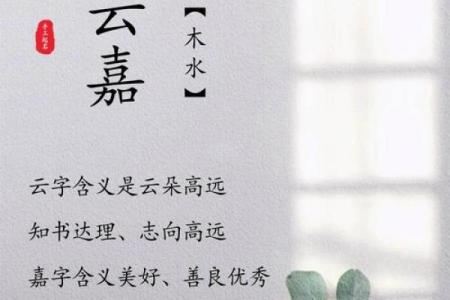 云嘉
【木水】
云字含义是云朵高远
知书达理、志向高远
嘉字含义美好、善良优秀